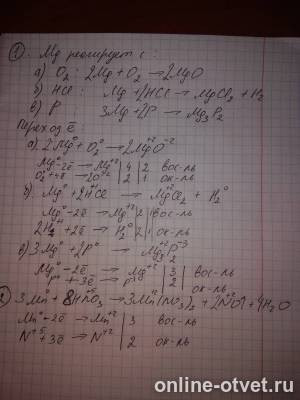 ① Mg реагирует с:
а) O₂: 2Mg + O₂ → 2MgO
б) HCl: Mg + 2HCl → MgCl₂ + H₂
в) P 3Mg + 2P → Mg₃P₂
Переход ē
а) 2Mg⁰ + O₂⁰ → 2Mg⁺²O⁻²
Mg⁰ - 2ē → Mg⁺² | 4 | 2 вос-ль
O₂⁰ + 4ē → 2O⁻² | 2 | 1 ок-ль
б) Mg⁰ + 2H⁺Cl → Mg⁺²Cl₂ + H₂⁰
Mg⁰ - 2ē → Mg⁺² | 2 | 1 вос-ль
2H⁺ + 2ē → H₂⁰ | 2 | 1 ок-ль
в) 3Mg⁰ + 2P⁰ → Mg₃⁺²P₂⁻³
Mg⁰ - 2ē → Mg⁺² | 3 вос-ль
P⁰ + 3ē → P⁻³ | 2 ок-ль
② 3Mn⁰ + 8HN⁺⁵O₃ → 3Mn⁺²(NO₃)₂ + 2N⁺²O↑ + 4H₂O
Mn⁰ - 2ē → Mn⁺² | 3 вос-ль
N⁺⁵ + 3ē → N⁺² | 2 ок-ль
online-otvet.ru